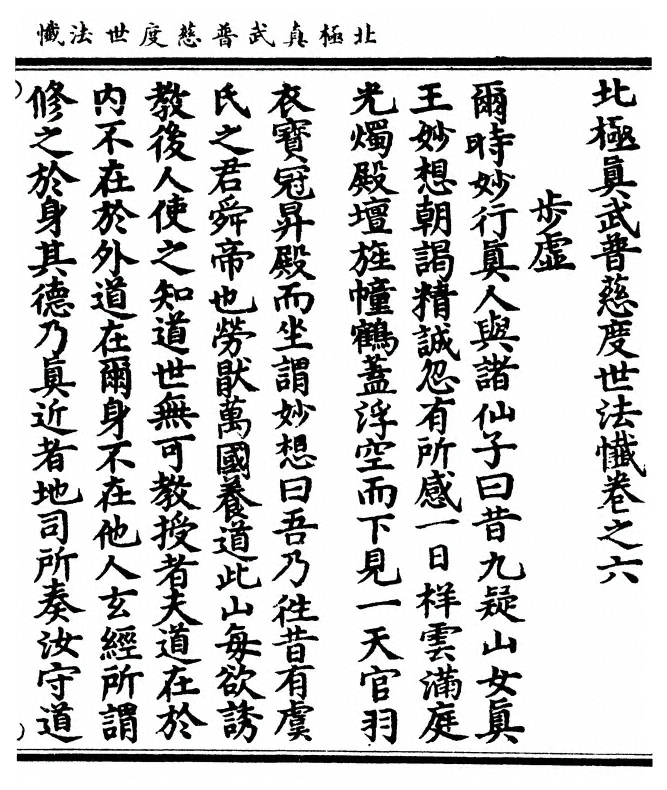 北極真武普慈度世法懺
北極眞武普慈度世法懺卷之六
步虛
爾時妙行眞人與諸仙子曰昔九疑山女眞
王妙想朝謁精誠忽有所感一日样雲滿庭
光燭殿壇旌幢鶴蓋浮空而下見一天官羽
衣寶冠昇殿而坐謂妙想曰吾乃徃昔有虞
氏之君舜帝也勞厭萬國養道此山每欲誘
教後人使之知道世無可教授者夫道在於
內不在於外道在爾身不在他人玄經所謂
修之於身其德乃眞近者地司所奏汝守道